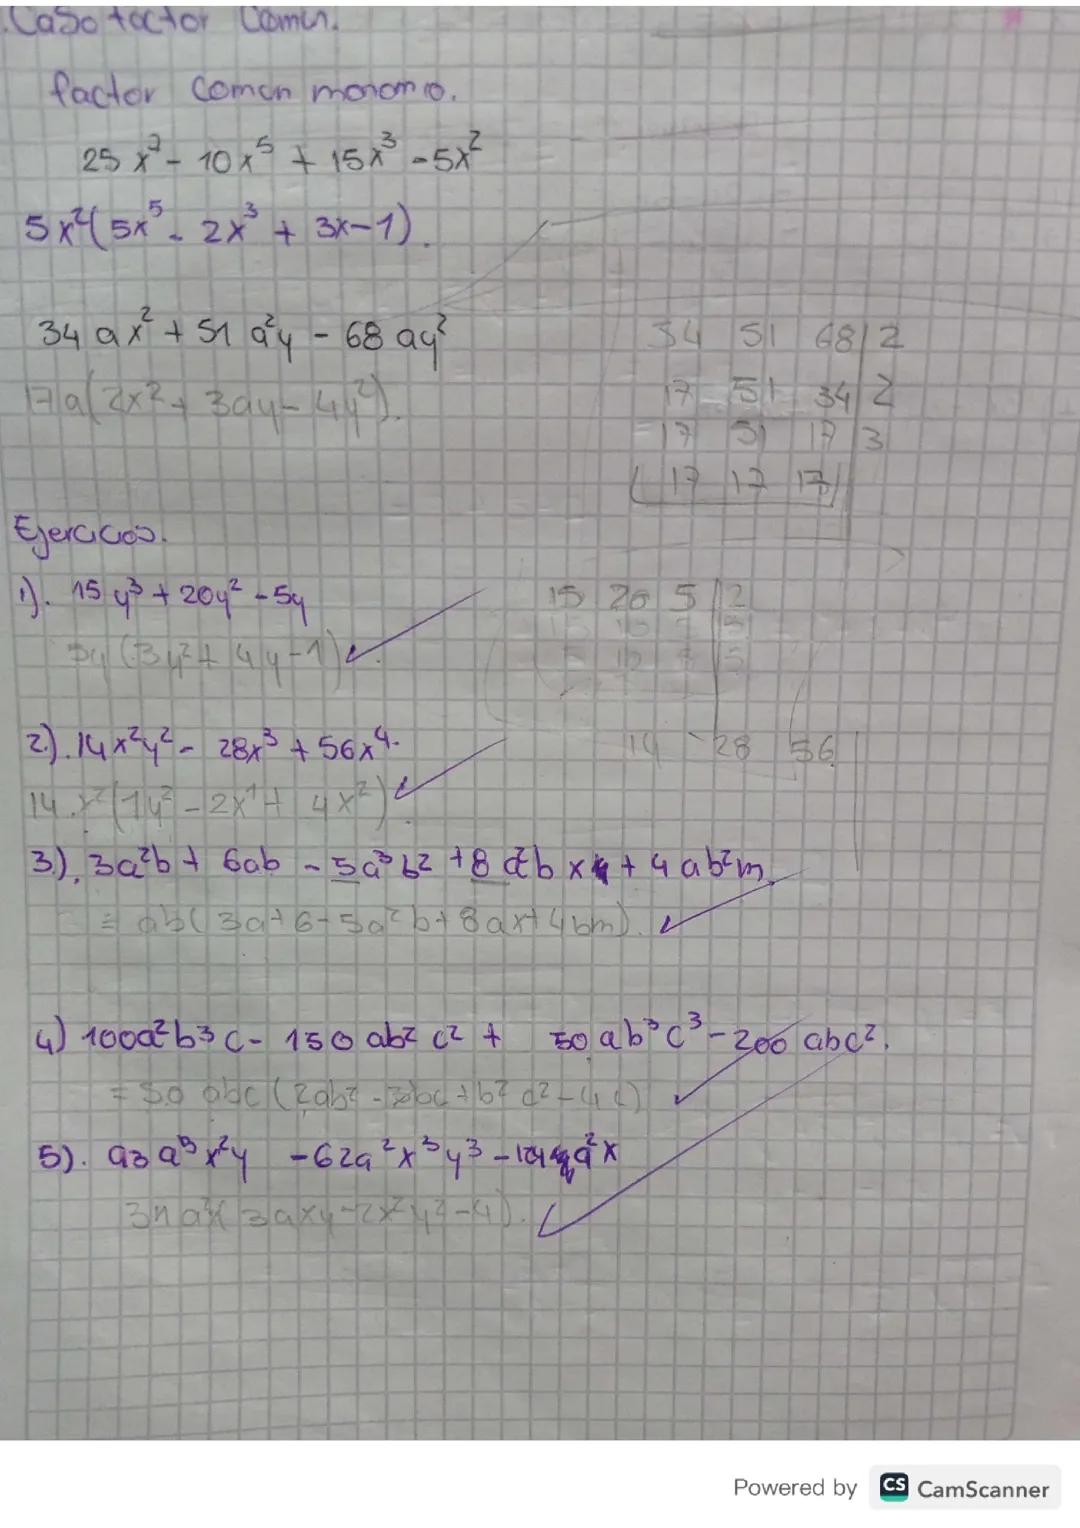 Caso factor Comun.
factor Comun monomio.
25x⁷ - 10x⁵ + 15x³ - 5x²
5x²(5x⁵ - 2x³ + 3x-1).
34 ax² + 51 a²y - 68 ay²
34 51 68 | 2
17a(2x² + 3ay - 4y²).
17 51 34 | 2
17 51 17 | 3
17 17 17
Ejercicios.
1). 15y³ + 20y² - 5y
15 20 5 | 2
5y (3y² + 4y - 1)
15 10 5 | 3
5 10 5 | 5
2). 14x²y² - 28x³ + 56x⁴.
14 - 28 56
14.x²(1y² - 2x¹ + 4x²).
3). 3a²b + 6ab - 5a³b² + 8a²bx + 4ab²m
= ab(3a+6-5a²b+8ax+4bm).
4) 100a²b³c - 150ab²c² + 50ab³c³ - 200abc².
= 50 abc (2ab² - 3bc + b²c² - 4c)
5). 93a³x²y - 62a²x³y³ - 124a²x
(3axy - 2x²y³ - 4).
Powered by CS CamScanner